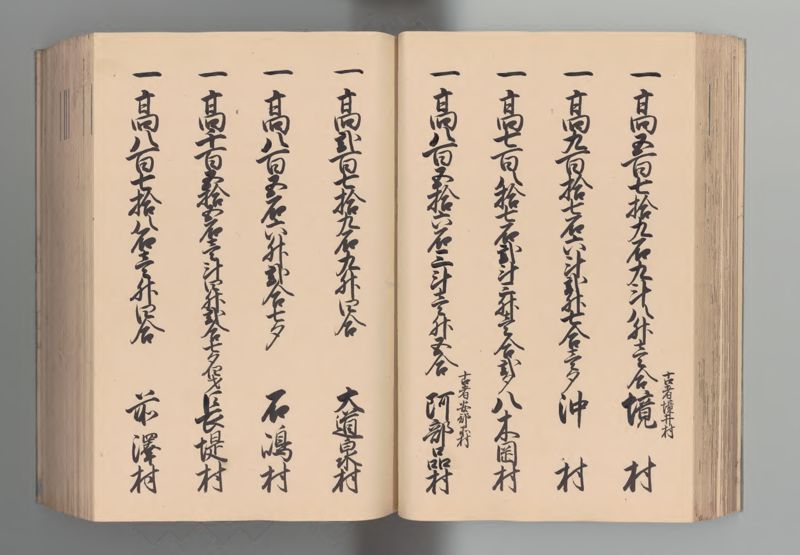 一高五百七拾九石九斗八升壱合 境村
古者境井村
一高九百拾七石六斗弐升七合壱夕 沖村
一高七百八拾七石弐斗三升壱合弐夕 八木岡村
一高八百五拾六石三斗壱升五合 阿部品村
古者安部品村
一高弐百七拾九石九升四合 大道泉村
一高八百五石六升弐合七夕 石嶋村
一高千百五拾五石壱斗四升弐合七夕 長堤村
一高八百七拾八石壱升四合 前澤村